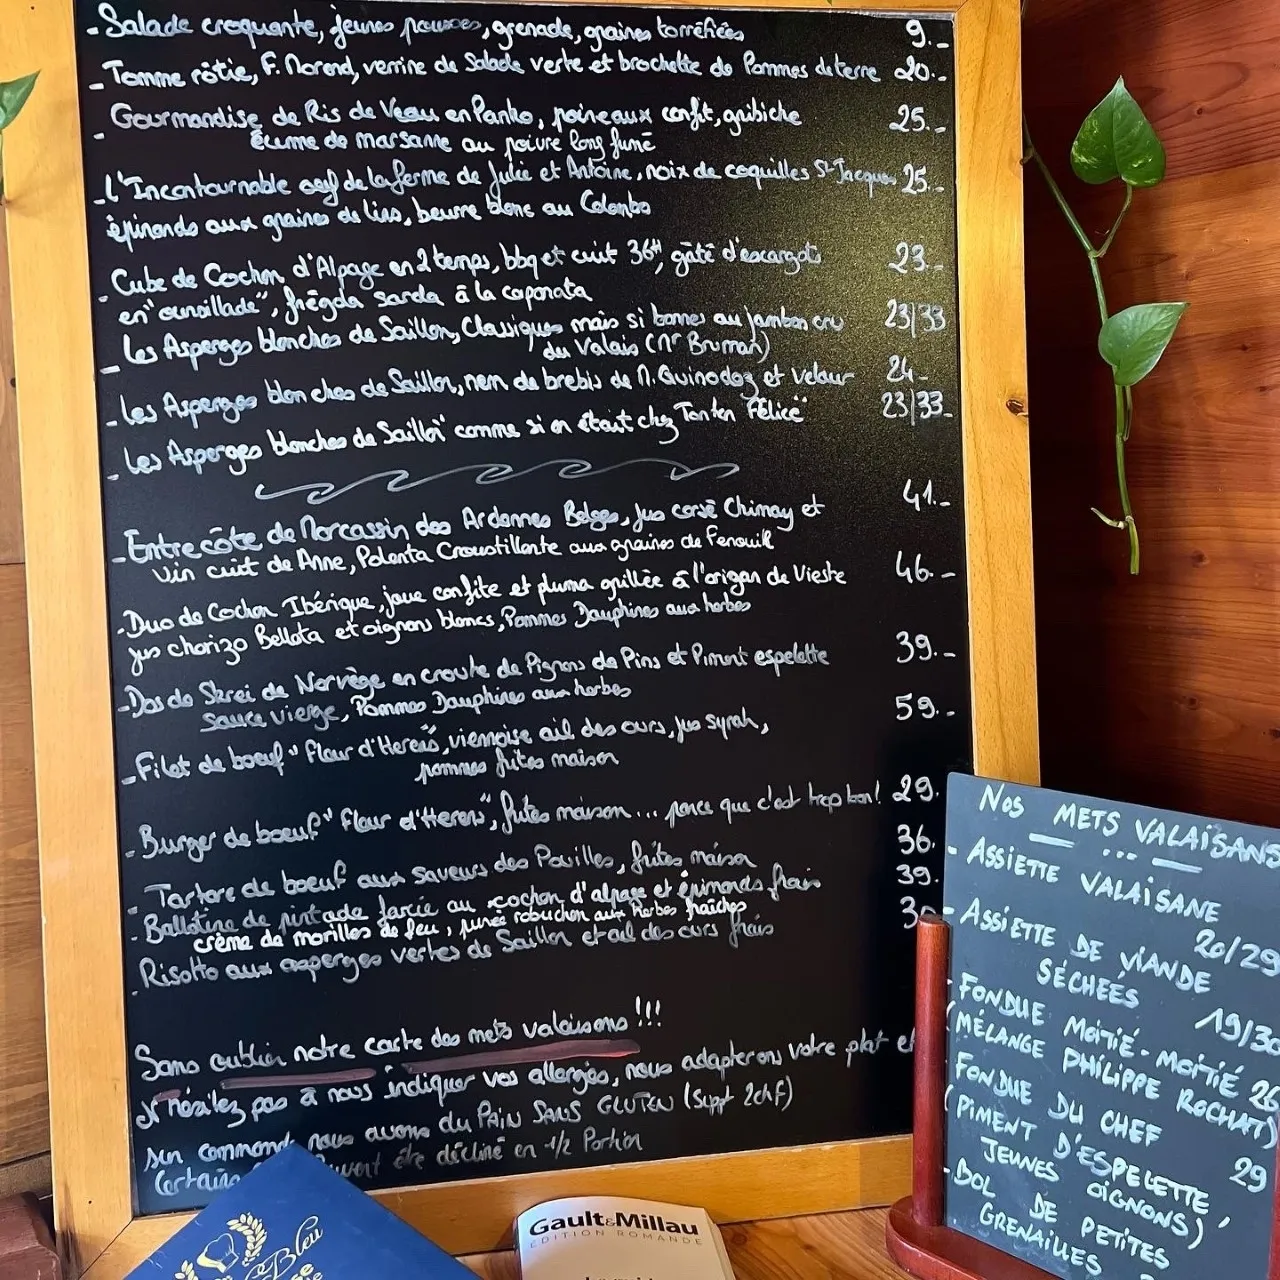 - Salade croquante, jeunes pousses, grenade, graines torréfiées 9.-
- Tomme rôtie, F. Morend, verrine de Salade verte et brochette de Pommes de terre 20.-
- Gourmandise de Ris de Veau en Panko, poireaux confit, gribiche 25.-
écume de marsanne au poivre long fumé
- L'Incontournable oeuf de la ferme de Julie et Antoine, noix de coquilles St-Jacques 25.-
épinards aux graines de lins, beurre blanc au Colombo
- Cube de Cochon d'Alpage en 2 temps, bbq et cuit 36H, gâté d'escargots 23.-
en "ourillade", frégola sarda à la caponata
- Les Asperges blanches de Saillon, Classiques mais si bonnes au jambon cru 23/33
du Valais (Mr Bruman)
- Les Asperges blanches de Saillon, nem de brebis de M. Quinodoz et velour 24.-
- Les Asperges blanches de Saillon "comme si on était chez Tonton Félice" 23/33.-
- Entrecôte de Marcassin des Ardennes Belges, jus corsé Chimay et 41.-
vin cuit de Anne, Polenta Croustillante aux graines de Fenouil
- Duo de Cochon Ibérique, joue confite et pluma grillée à l'origan de Vieste 46.-
jus chorizo Bellota et oignons blancs, Pommes Dauphines aux herbes
- Dos de Skrei de Norvège en croute de Pignons de Pins et Piment espelette 39.-
sauce vierge, Pommes Dauphines aux herbes
- Filet de boeuf "Fleur d'Herens", viennoise ail des ours, jus syrah, 59.-
pommes frites maison
- Burger de boeuf "Fleur d'Herens", frites maison... parce que c'est trop bon! 29.
- Tartare de boeuf aux saveurs des Pouilles, frites maison 36.
- Ballotine de pintade farcie au cochon d'alpage et épinards frais 39.
crème de morilles de feu, purée robuchon aux herbes fraîches
- Risotto aux asperges vertes de Saillon et ail des ours frais
Sans oublier notre carte des mets valaisans !!!
N'hésitez pas à nous indiquer vos allergies, nous adapterons votre plat et
sur commande nous avons du PAIN SANS GLUTEN (Suppt 2chf)
Certains être décliné en 1/2 Portion
Nos METS VALAISANS
- ASSIETTE VALAISANE
20/29
- ASSIETTE DE VIANDE
SÉCHÉES
19/30
- FONDUE MOITIÉ-MOITIÉ 26
(MÉLANGE PHILIPPE ROCHAT)
- FONDUE DU CHEF
29
(PIMENT D'ESPELETTE,
JEUNES OIGNONS)
- BOL DE PETITES
GRENAILLES
Gault&Millau
ÉDITION ROMANDE
Bleu